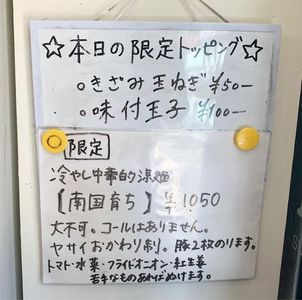 ☆本日の限定トッピング☆
○きざみ玉ねぎ ¥50-
○味付玉子 ¥100-
限定
冷やし中華的涼麺
【南国育ち】 ¥1050
大不可。コールはありません。
ヤサイおかわり制。豚2枚のります。
トマト・水菜・フライドオニオン・紅生姜
苦手なものあればぬけます。